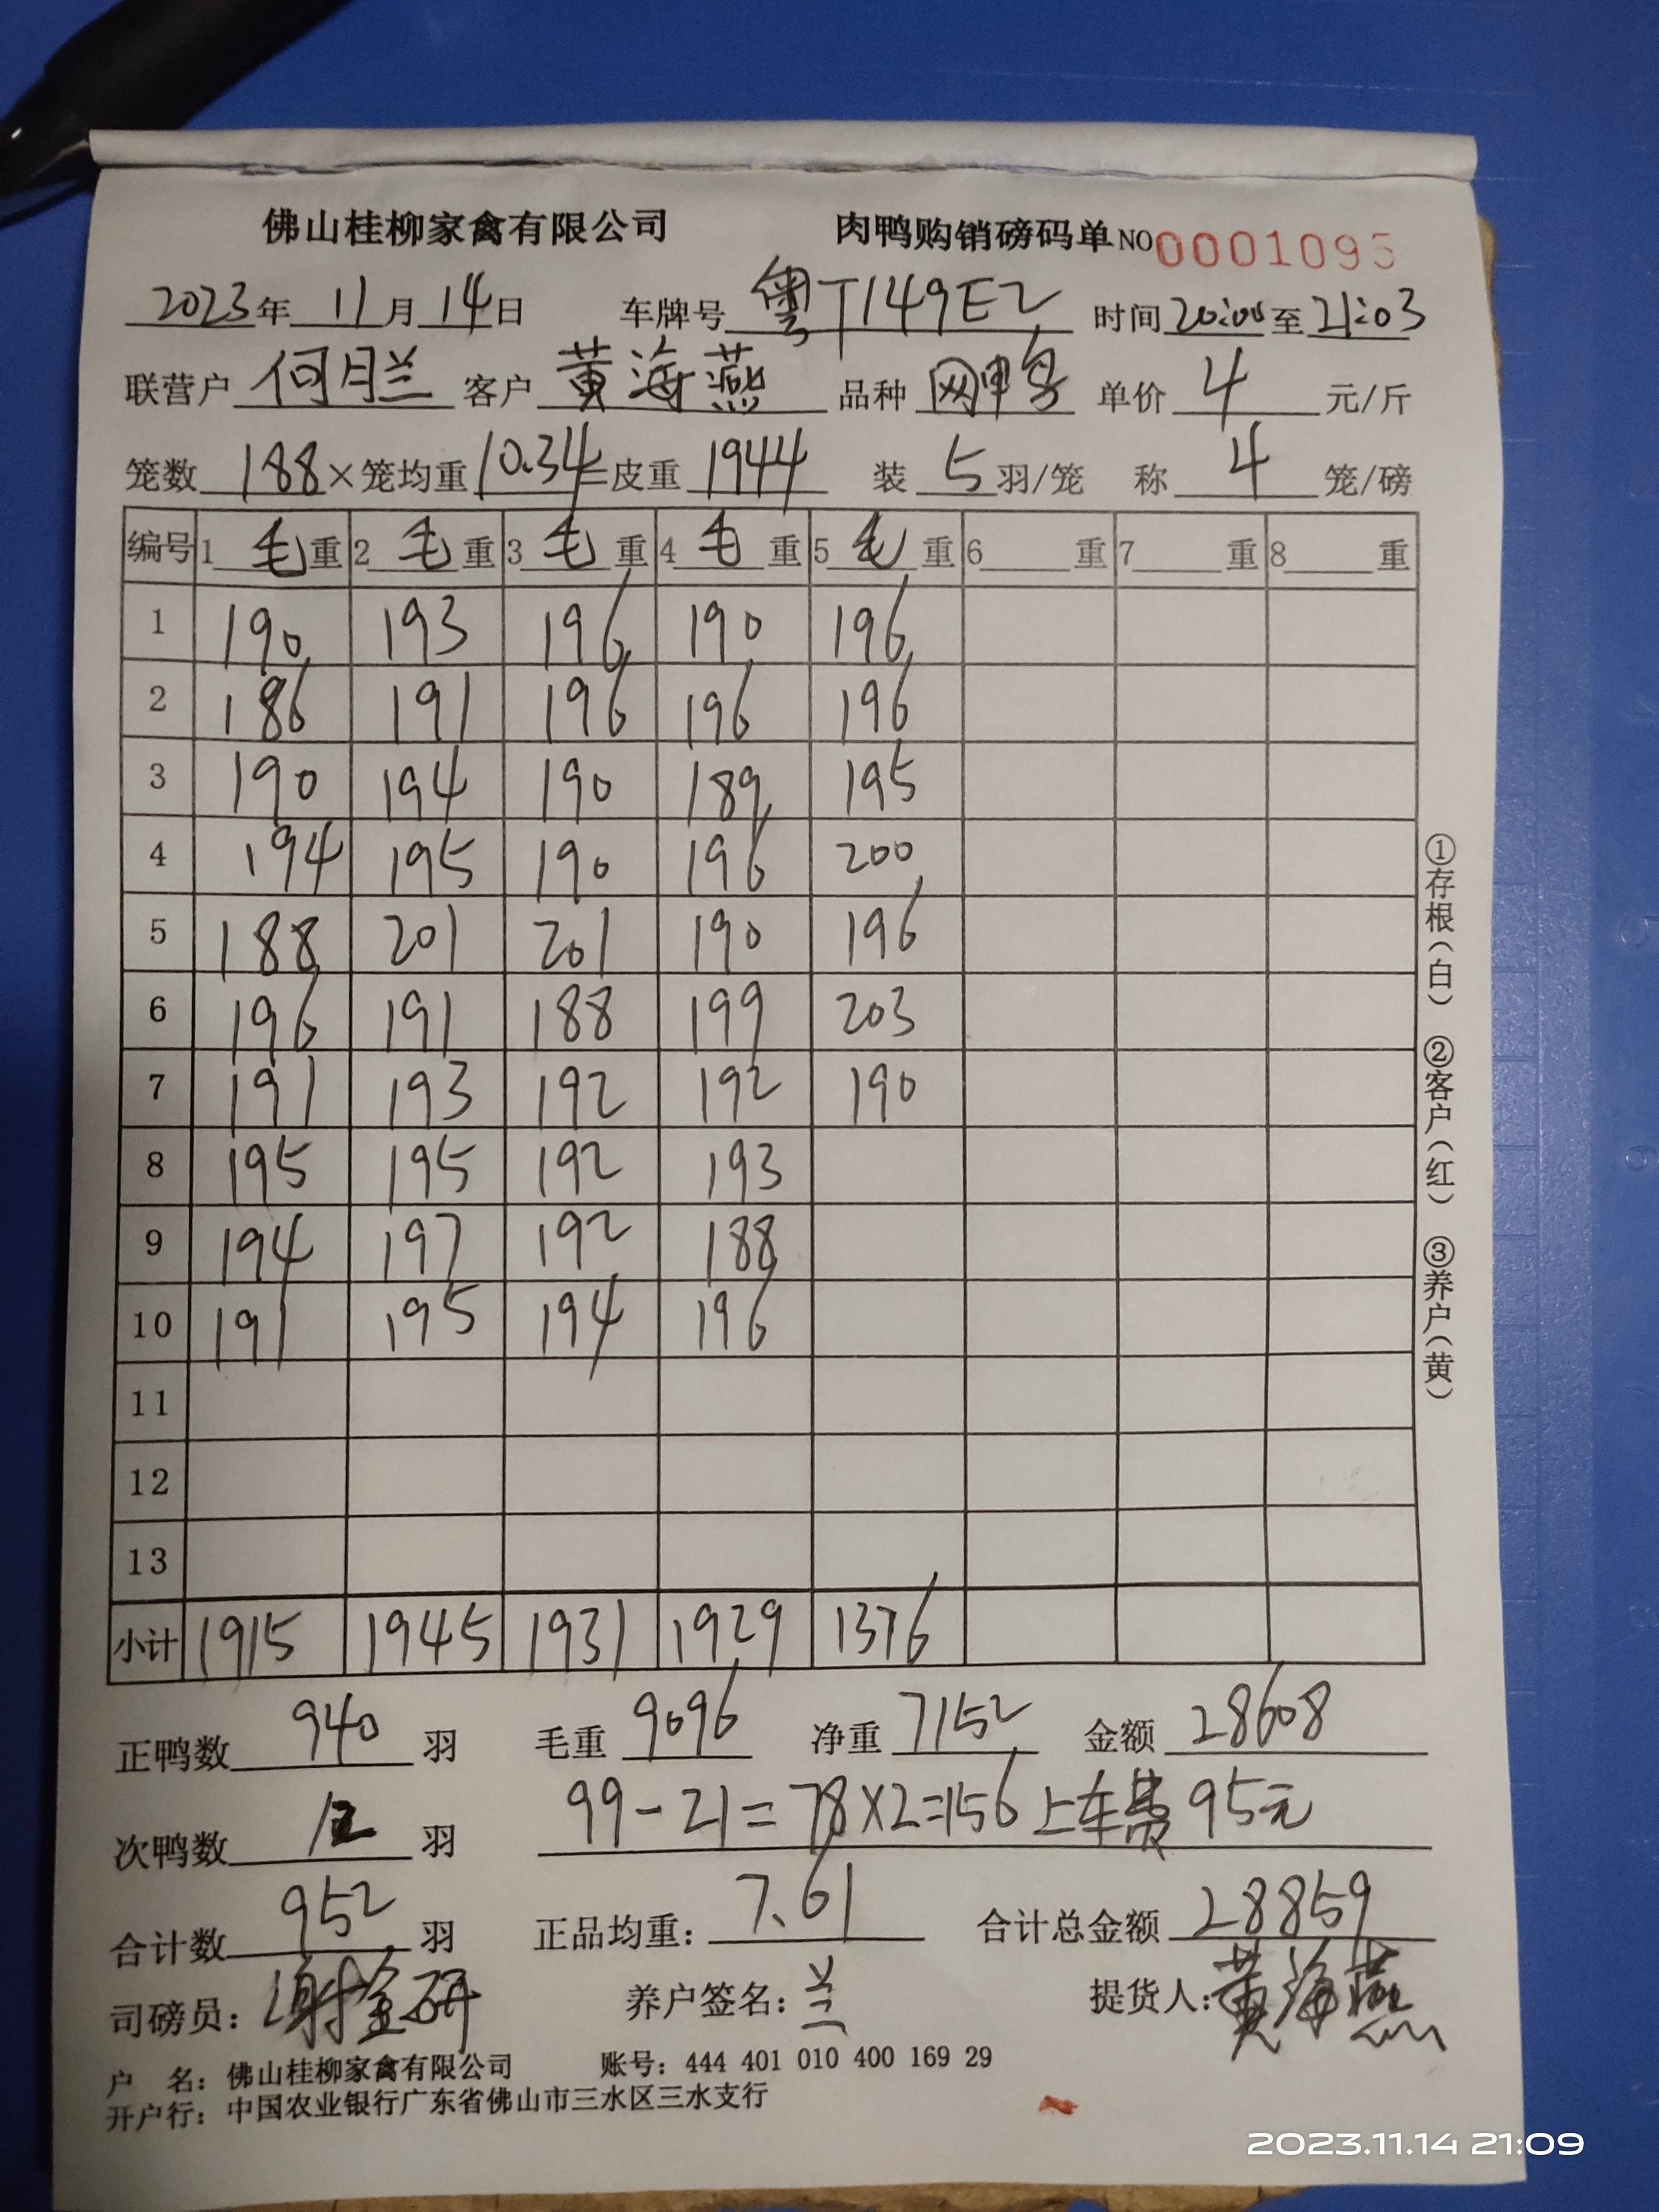 佛山桂柳家禽有限公司 肉鸭购销磅码单 NO 0001095
2023年 11月 14日 车牌号 粤T149E2 时间 20:00 至 21:03
联营户 何月兰 客户 黄海燕 品种 网鸭 单价 4 元/斤
笼数 188 × 笼均重 10.34 = 皮重 1944 装 5 羽/笼 称 4 笼/磅
编号 1 毛 重 2 毛 重 3 毛 重 4 毛 重 5 毛 重 6 重 7 重 8 重
1 190 193 196 190 196
2 186 191 196 196 196
3 190 194 190 189 195
4 194 195 190 196 200
5 188 201 201 190 196
6 196 191 188 199 203
7 191 193 192 192 190
8 195 195 192 193
9 194 197 192 188
10 191 195 194 196
11
12
13
小计 1915 1945 1931 1929 1376
正鸭数 940 羽 毛重 9096 净重 7152 金额 28608
次鸭数 12 羽 99-21=78×2=156 上车费 95元
合计数 952 羽 正品均重: 7.61 合计总金额 28859
司磅员: 谢金研 养户签名: 兰 提货人: 黄海燕
户 名: 佛山桂柳家禽有限公司 账号: 444 401 010 400 169 29
开户行: 中国农业银行广东省佛山市三水区三水支行
①存根(白) ②客户(红) ③养户(黄)
2023.11.14 21:09